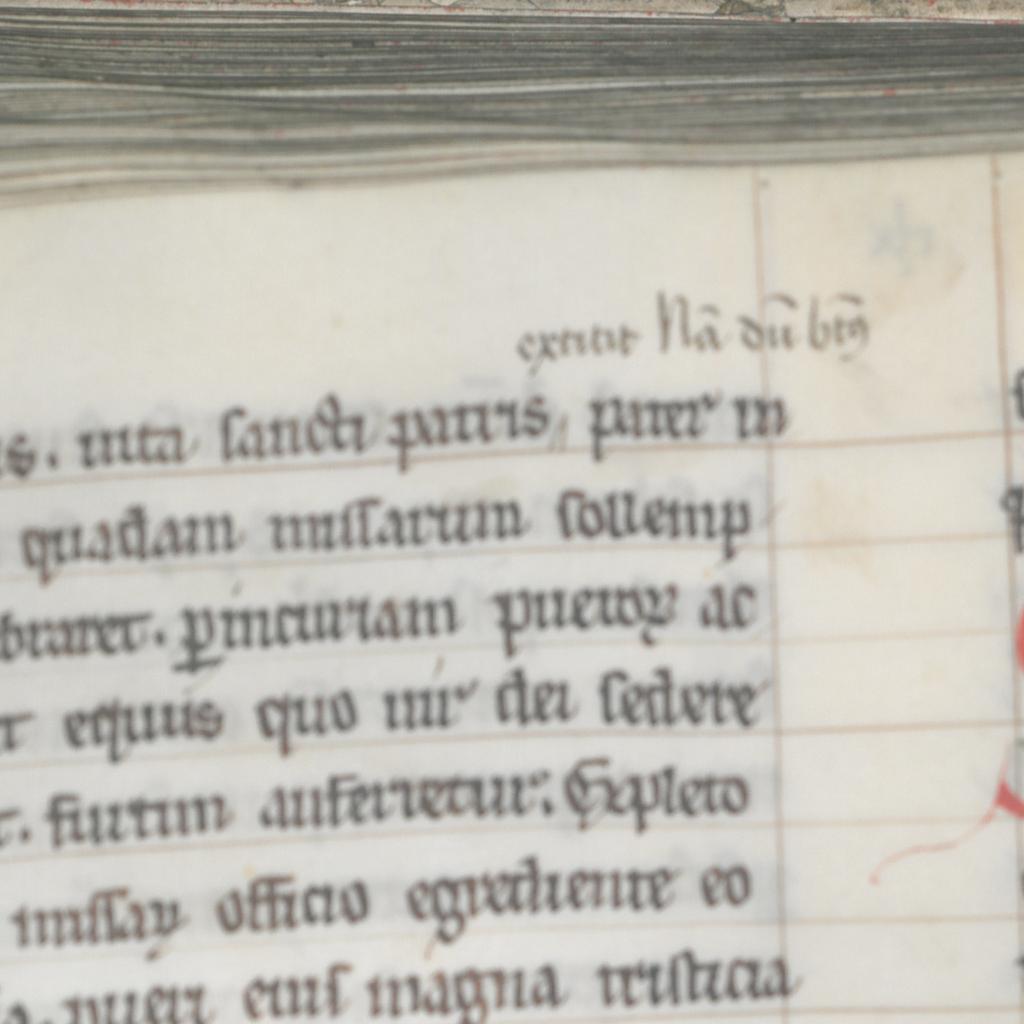 extitit Nā dū btꝯ
uita sancti patris, pater in
quadam missarum sollemp
braret. ꝑ incuriam pueroꝝ ac
equus quo uir dei sedere
furtim auferretur. Expleto
missaꝝ officio egrediente eo
pueri eius magna tristicia